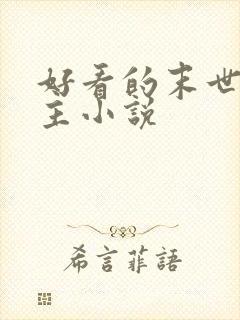 好看的末世
主小说
希言菲語